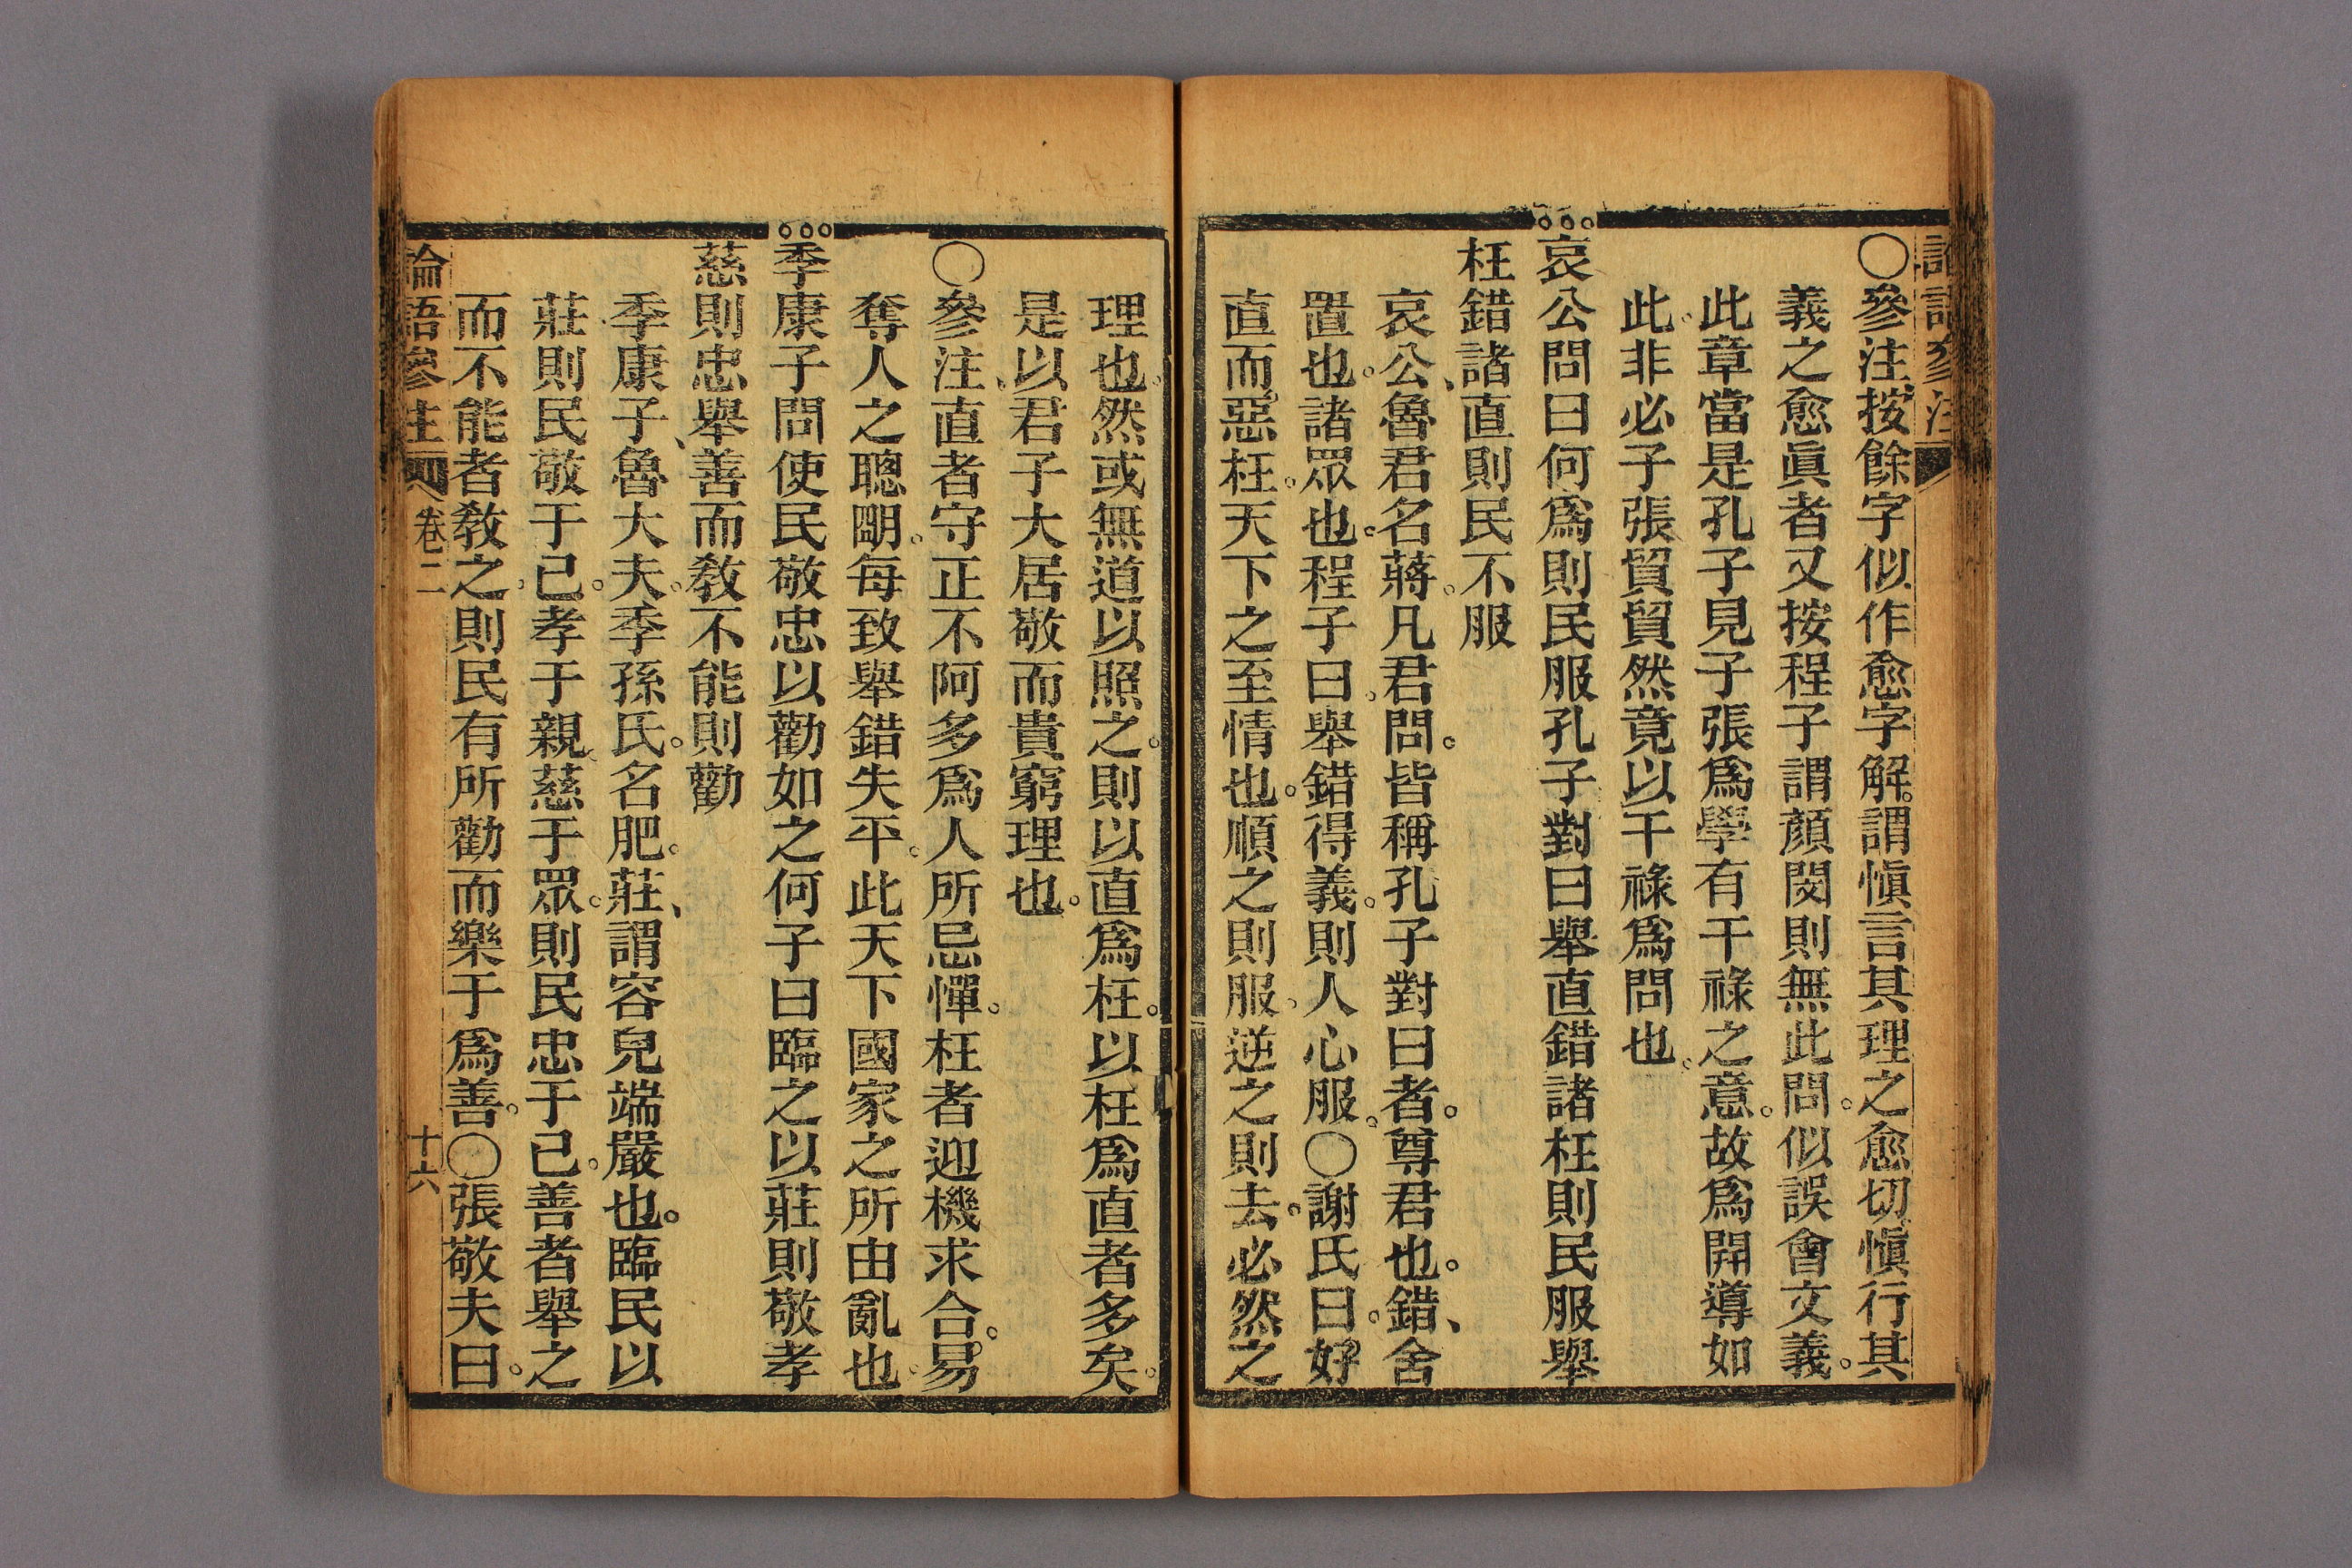 論語參注
〇參注、按餘字似作愈字解。謂愼言其理之愈切愼行其
義之愈眞者又按程子謂顏閔則無此問。似誤會文義。
此章當是孔子見子張爲學有干祿之意。故爲開導如
此。非必子張貿貿然竟以干祿爲問也。
哀公問曰何爲則民服孔子對曰舉直錯諸枉則民服舉
枉錯諸直則民不服
哀公、魯君名蔣。凡君問。皆稱孔子對曰者。尊君也。錯、舍
置也。諸眾也。程子曰。舉錯得義。則人心服。〇謝氏曰。好
直而惡枉。天下之至情也。順之則服。逆之則去。必然之
理也。然或無道以照之。則以直爲枉。以枉爲直者多矣。
是以君子大居敬而貴窮理也。
〇參注、直者守正不阿多爲人所忌憚。枉者迎機求合。易
奪人之聰明。每致舉錯失平。此天下國家之所由亂也。
季康子問使民敬忠以勸如之何子曰臨之以莊則敬孝
慈則忠舉善而敎不能則勸
季康子、魯大夫。季孫氏。名肥。莊、謂容皃端嚴也。臨民以
莊則民敬于己。孝于親慈于眾。則民忠于己。善者舉之
而不能者敎之。則民有所勸而樂于爲善。〇張敬夫曰。
論語參注 卷二 十六